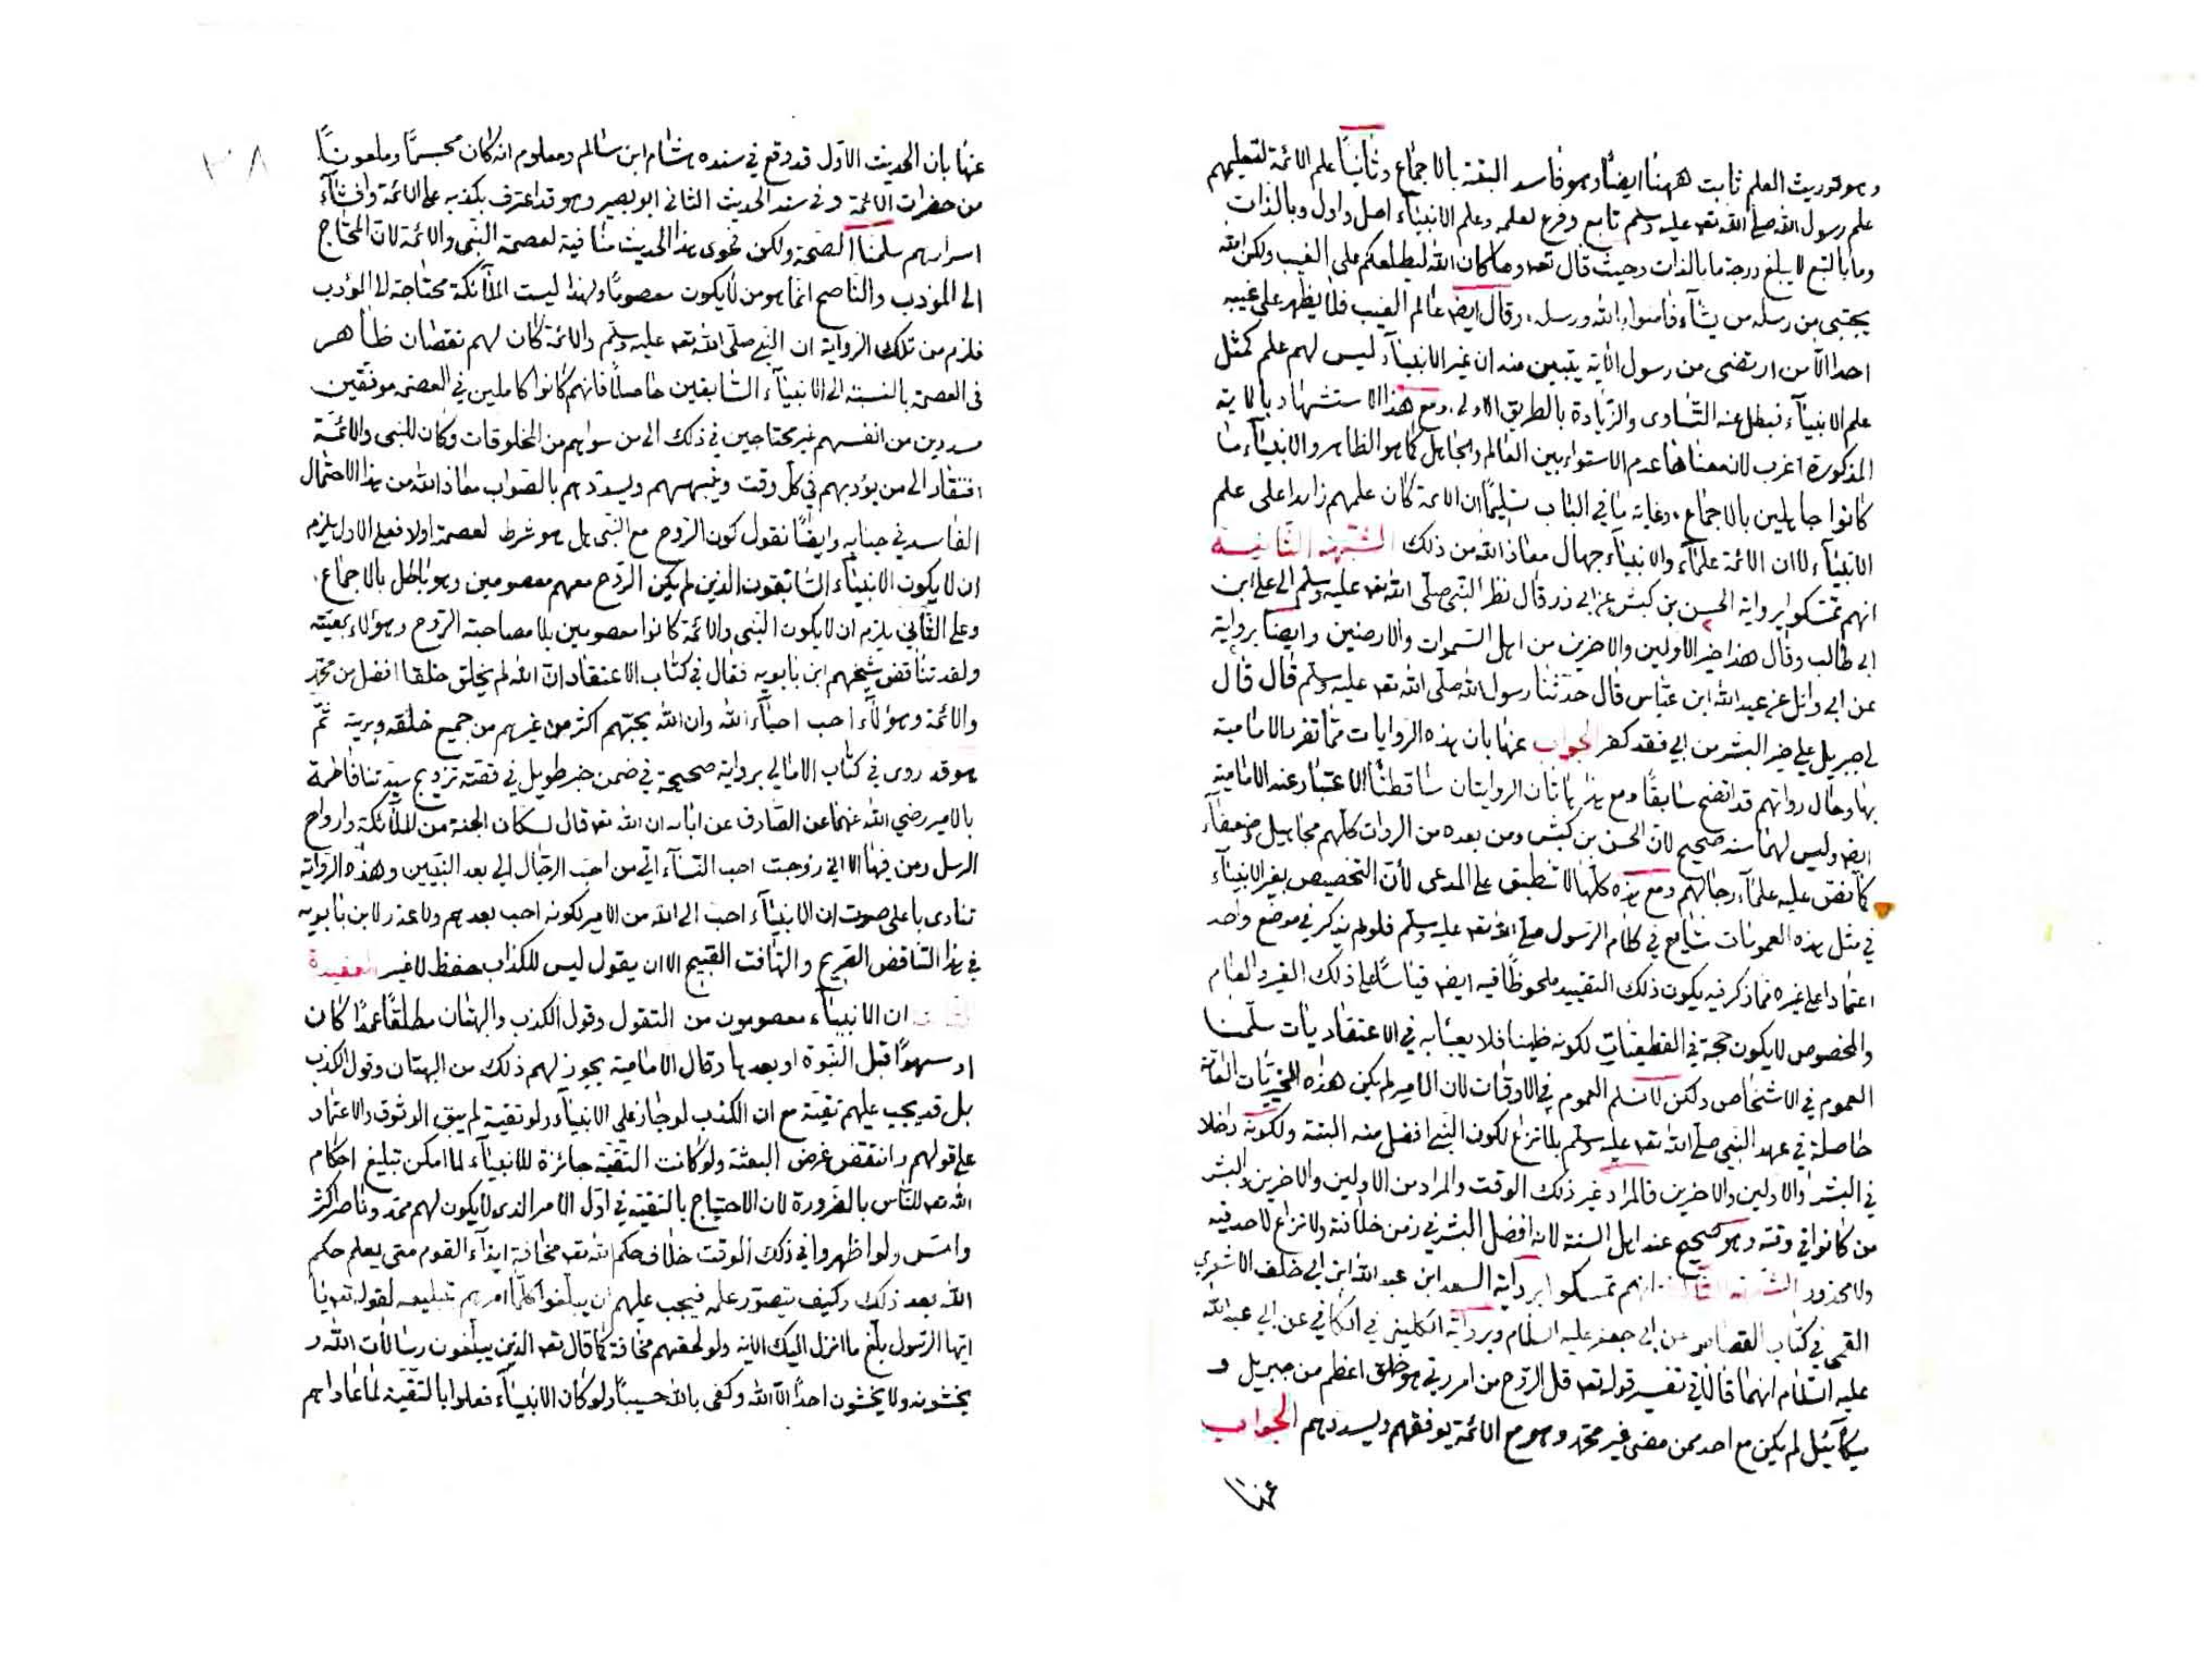 وهو توريث العلم ثابت ههنا ايضا وهو فاسد البتة بالاجماع وثانيا علم الائمة لتعليمهم
علم رسول الله صلى الله تعه عليه وسلم تابع وفرع لعلمه وعلم الانبياء اصل واول وبالذات
وما بالتبع لا يبلغ درجة ما بالذات وحيث قال تعه وما كان الله ليطلعكم على الغيب ولكن الله
يجتبى من رسله من يشآء فامنوا بالله ورسله وقال ايض عالم الغيب فلا يظهر على غيبه
احدا الّا من ارتضى من رسول الاية يتبين منه ان غير الانبيآء ليس لهم علم كمثل
علم الانبيآء فبطل عنه التساوى والزيادة بالطريق الاولى ومع هذا الاستشهاد بالاية
المذكورة اغرب لان معناها عدم الاستواء بين العالم والجاهل كما هو الظاهر والانبيآء ما
كانوا جاهلين بالاجماع وغاية ما في الباب تسليما ان الائمة كان علمهم زايدا على علم
الانبيآء لا ان الائمة علمآء والانبيآء جهال معاذ الله من ذلك الشبهة الثانية
انهم تمسكوا برواية الحسن بن كبش عن ابى ذر قال نظر النبى صلى الله تعه عليه وسلم الى على ابن
ابى طالب وقال هذا خير الاولين والاخرين من اهل السموات والارضين وايضا برواية
عن ابى وائل عن عبد الله ابن عباس قال حدثنا رسول الله صلى الله تعه عليه وسلم قال قال
لى جبريل على خير البشر من ابى فقد كفر الجواب عنها بان هذه الروايات مما تفرد الامامية
بها وحال رواتهم قد اتضح سابقا ومع هذا هاتان الروايتان ساقطتا الاعتبار عند الامامية
ايض وليس لهما سند صحيح لان الحسن بن كبش ومن بعده من الروات كلهم مجاهيل وضعفاء
كما نص عليه علمآء رجالهم ومع هذه كلها لا تنطبق على المدعى لان التخصيص بغير الانبيآء
في مثل هذه العمومات شايع في كلام الرسول صلى الله تعه عليه وسلم فلو لم يذكر في موضع واحد
اعتمادا على غيره مما ذكر فيه يكون ذلك التقييد ملحوظا فيه ايض قياسا على ذلك الغير والعام
والمخصوص لا يكون حجة في القطعيات لكونه ظنيا فلا يعبأ به في الاعتقاديات سلمنا
العموم في الاشخاص ولكن لا نسلم العموم في الاوقات لان الامير لم يكن هذه الخيريات العامة
حاصلة في عهد النبى صلى الله تعه عليه وسلم بلا نزاع لكون النبى افضل منه البتة ولكونه داخلا
في البشر والاولين والاخرين فالمراد غير ذلك الوقت والمراد من الاولين والاخرين والبشر
من كانوا في وقته وهو صحيح عند اهل السنة لانه افضل البشر في زمن خلافته ولا نزاع لاحد فيه
ولا محذور الشبهة الثالثة انهم تمسكوا برواية السعد ابن عبد الله ابن ابى خلف الاشعري
القمى في كتاب القصاص عن ابى جعفر عليه السلام وبرواية الكلينى في الكافي عن ابى عبد الله
عليه السلام انهما قالا في تفسير قوله تعه قل الروح من امر ربى هو خلق اعظم من جبريل و
ميكآئيل لم يكن مع احد ممن مضى غير محمد وهو مع الائمة يوفقهم ويسددهم الجواب
عنها
٢٨
عنها بان الحديث الاول قد وقع في سنده هشام ابن سالم ومعلوم انه كان مجسما وملعونا
من حضرات الائمة وفى سند الحديث الثانى ابو بصير وهو قد اعترف بكذبه على الائمة وافشآء
اسرارهم سلمنا الصحة ولكن فحوى هذا الحديث منافية لعصمة النبى والائمة لان المحتاج
الى المؤدب والناصح انما هو من لا يكون معصوما ولهذا ليست الملآئكة محتاجة الى المؤدب
فلزم من تلك الرواية ان النبى صلى الله تعه عليه وسلم والائمة كان لهم نقصان ظاهر
فى العصمة بالنسبة الى الانبيآء السابقين حاصلا فانهم كانوا كاملين في العصمة موفقين
مسددين من انفسهم غير محتاجين في ذلك الى من سواهم من المخلوقات وكان للنبى والائمة
افتقار الى من يؤدبهم في كل وقت وينبههم ويسددهم بالصواب معاذ الله من هذا الاحتمال
الفاسد في جنابه وايضا نقول كون الروح مع النبى هل هو شرط لعصمة اولا فعلى الاول يلزم
ان لا يكون الانبيآء السابقون الذين لم يكن الروح معهم معصومين وهو باطل بالاجماع
وعلى الثانى يلزم ان لا يكون النبى والائمة كانوا معصومين بلا مصاحبة الروح وهؤلاء بمعيته
ولقد تناقض شيخهم ابن بابويه فقال في كتاب الاعتقاد ان الله لم يخلق خلقا افضل من محمد
والائمة وهؤلآء احب احبآء الله وان الله يحبهم اكثر من غيرهم من جميع خلقه وبريته ثم
هو قد روى في كتاب الامالي برواية صحيحة في ضمن خبر طويل في قصة تزويج سيدتنا فاطمة
بالامير رضي الله عنهما عن الصادق عن ابائه ان الله تعه قال لسكان الجنة من الملآئكة وارواح
الرسل ومن فيها الا انى زوجت احب النسآء الى من احب الرجال الى بعد النبيين وهذه الرواية
تنادى باعلى صوت ان الانبيآء احب الى الله من الامير لكونه احب بعدهم ولا عذر لابن بابويه
في هذا التناقض الصريح والتهافت القبيح الا ان يقول ليس للكذاب حفظ لا غير العقيدة
ان الانبيآء معصومون من التقول وقول الكذب والبهتان مطلقا عمدا كان
او سهوا قبل النبوة او بعدها وقال الامامية يجوز لهم ذلك من البهتان وقول الكذب
بل قد يجب عليهم تقية مع ان الكذب لو جاز على الانبيآء ولو تقية لم يبق الوثوق والاعتماد
على قولهم وانتقض غرض البعثة ولو كانت التقية جائزة للانبيآء لما امكن تبليغ احكام
الله تعه للناس بالضرورة لان الاحتياج بالتقية في اول الامر الذى لا يكون لهم ممد وناصر اكثر
وامس ولو اظهروا في ذلك الوقت خلاف حكم الله تعه مخافة ايذآء القوم متى يعلم حكم
الله بعد ذلك وكيف يتصور علمه فيجب عليهم ان يبلغوا كلما امرهم لقوله تعه يا
ايها الرسول بلغ ما انزل اليك الاية ولو لحقهم مخافة كما قال تعه الذين يبلغون رسالات الله و
يخشونه ولا يخشون احدا الّا الله وكفى بالله حسيبا ولو كان الانبيآء فعلوا بالتقية لما عاداهم